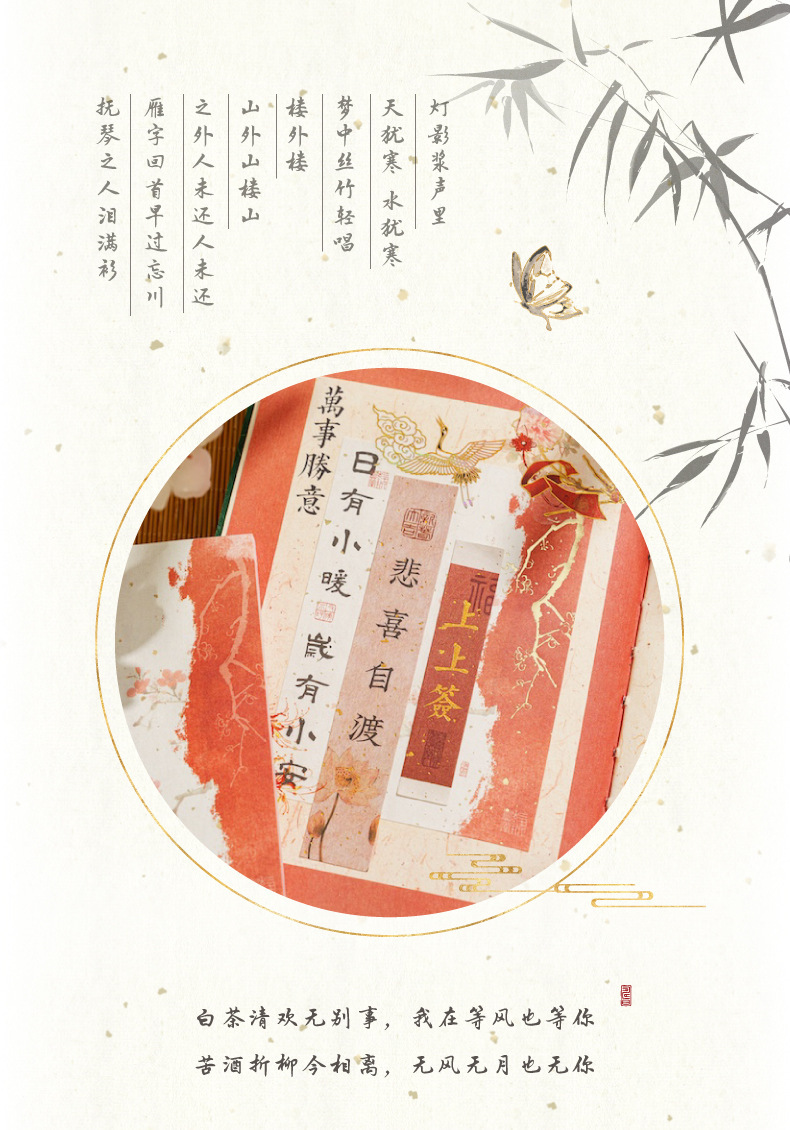 灯影浆声里
天犹寒 水犹寒
梦中丝竹轻唱
楼外楼
山外山楼山
之外人未还人未还
雁字回首早过忘川
抚琴之人泪满衫
萬事勝意
日有小暖
歲有小安
悲喜自渡
福
上上簽
白茶清欢无别事，我在等风也等你
苦酒折柳今相离，无风无月也无你